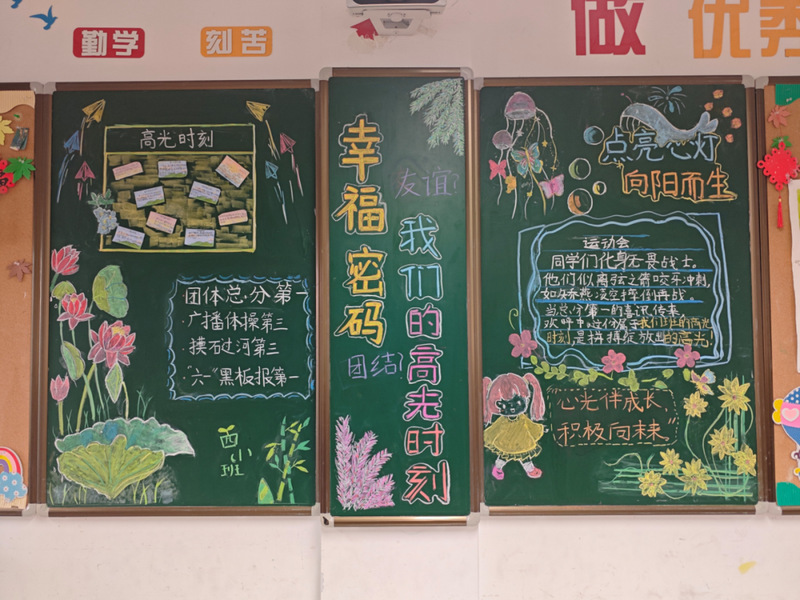 勤学
刻苦
做
优秀
高光时刻
团体总分第一
·广播体操第三
·摸石过河第三
·"六一"黑板报第一
西小
班
幸福密码
友谊?
团结?
我们的高光时刻
点亮心灯
向阳而生
运动会
同学们化身无畏战士。
他们似离弦之箭咬牙冲刺,
如矫燕凌空摔倒再战。
当总分第一的喜讯传来,
欢呼中,这份属于我们班的高光
时刻,是拼搏绽放出的高光!
"心光伴成长,
积极向未来"